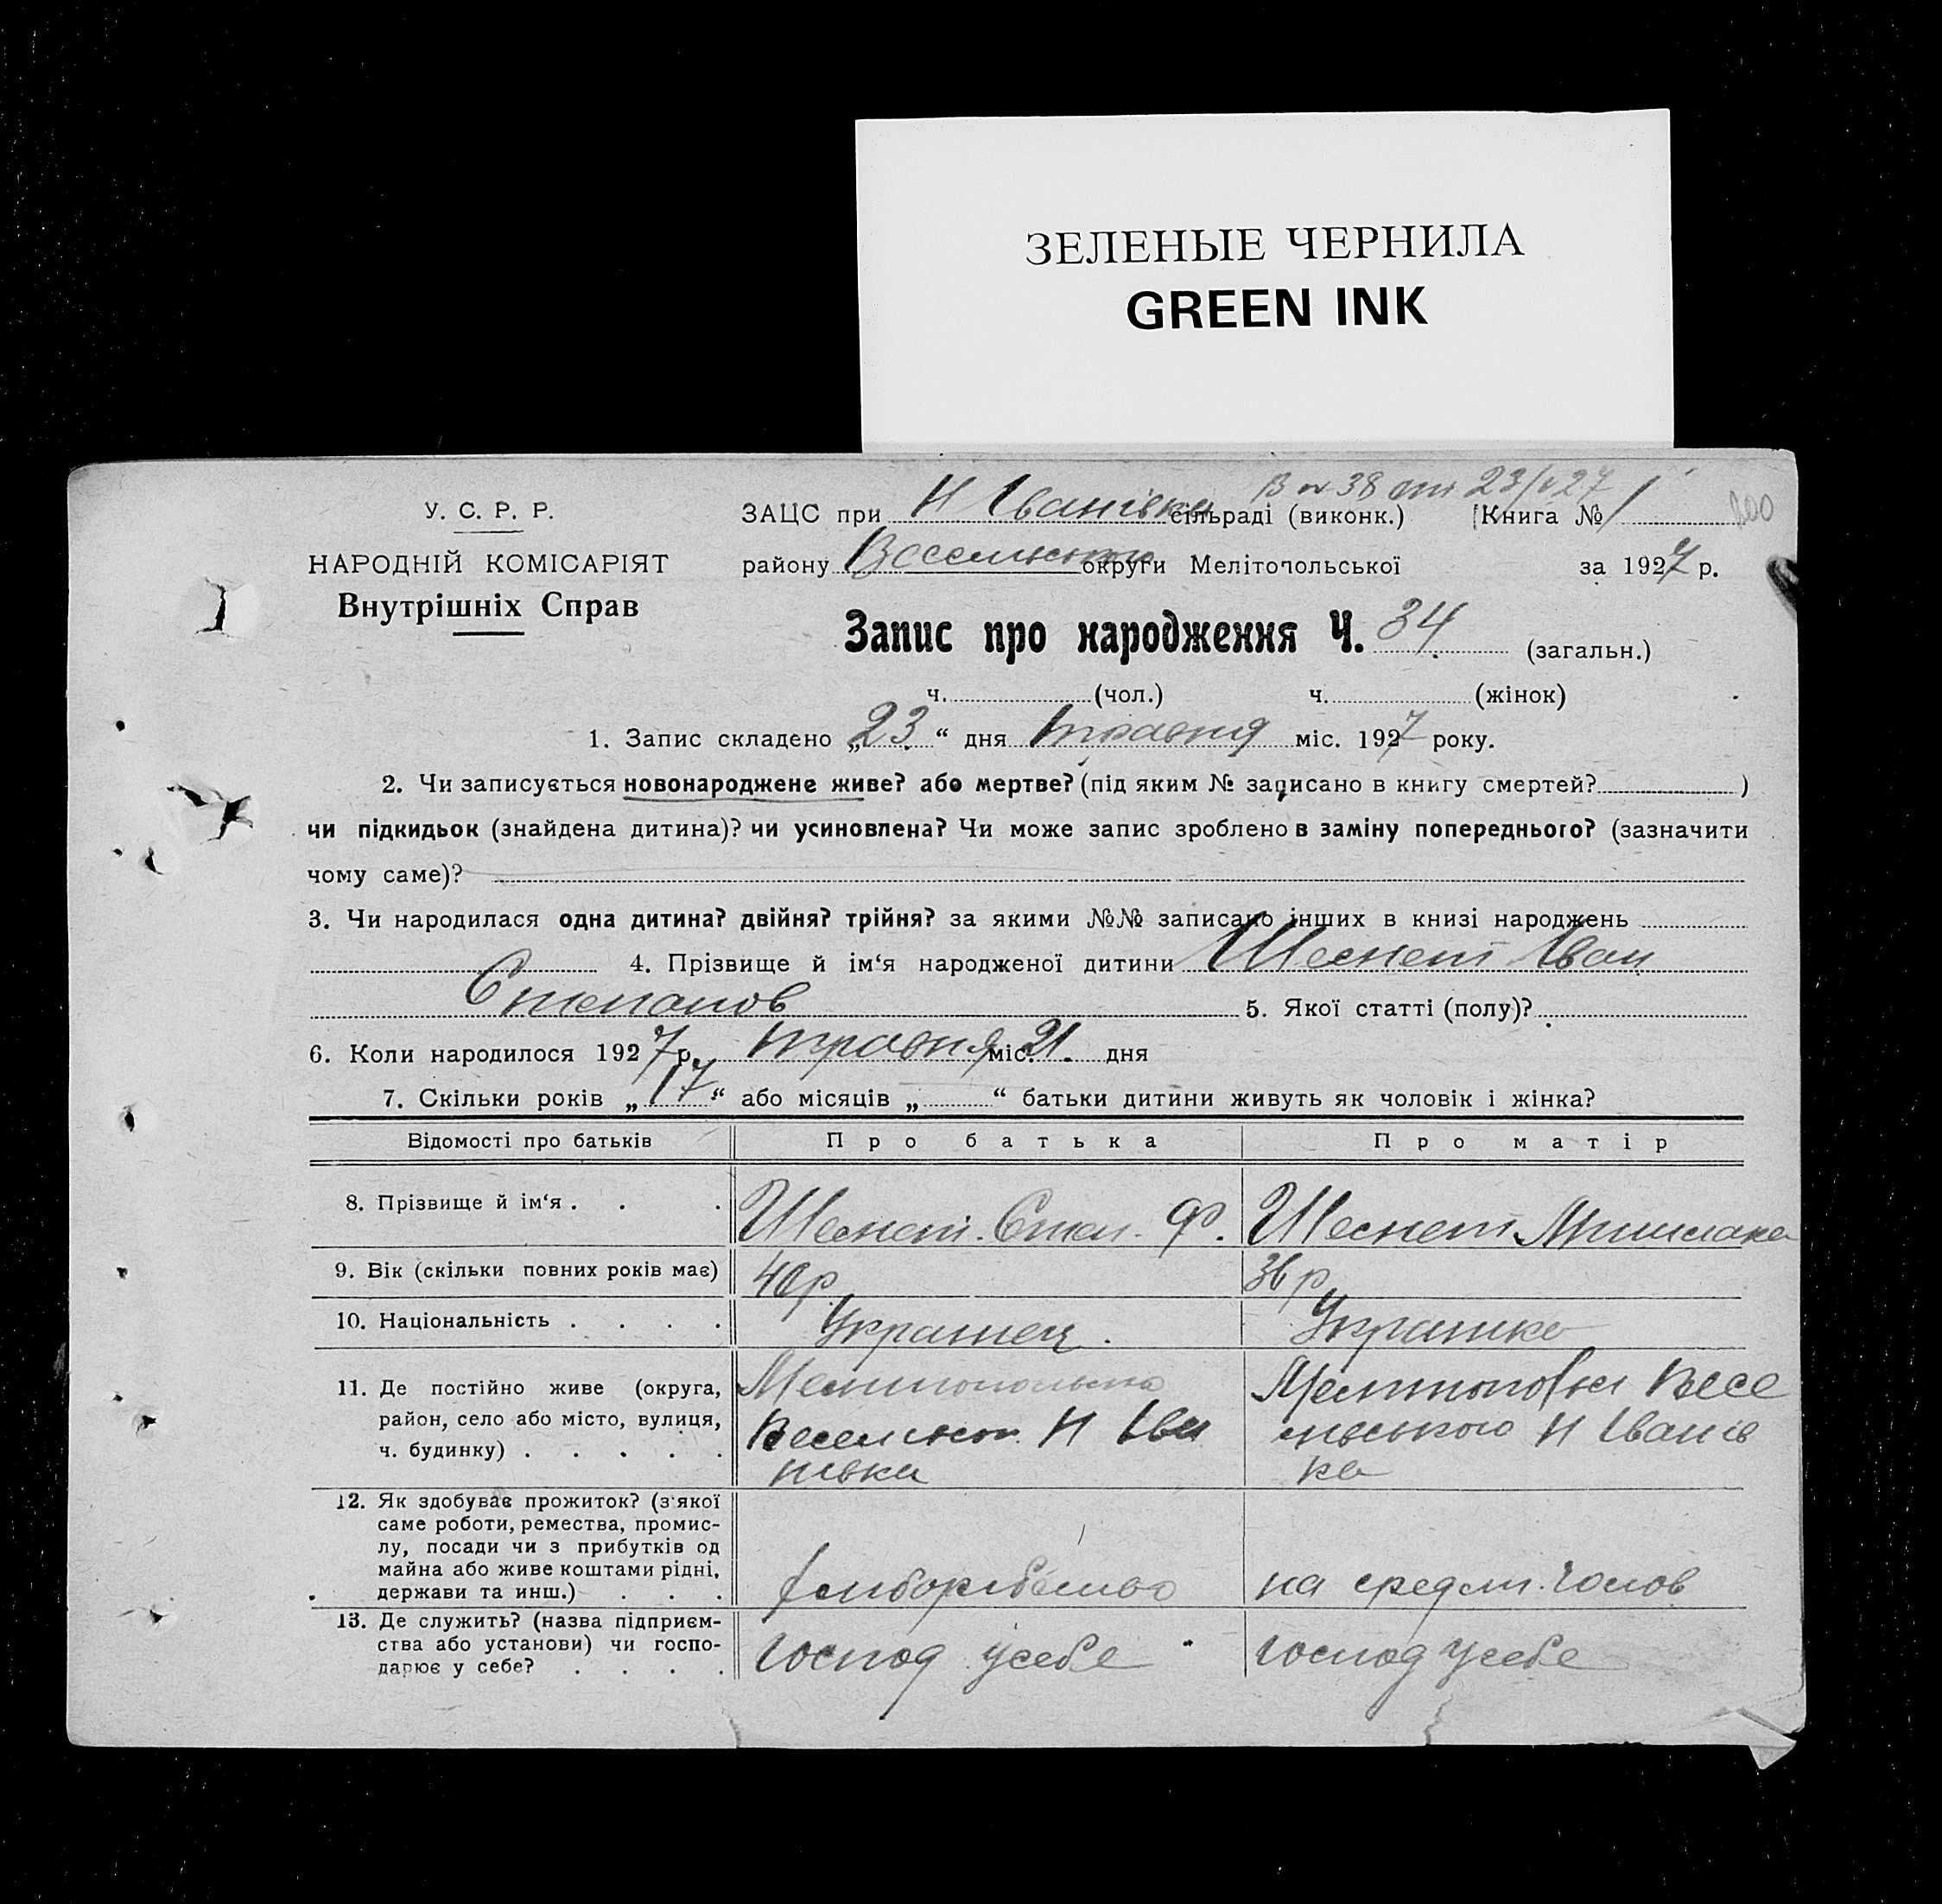 ЗЕЛЕНЫЕ ЧЕРНИЛА
GREEN INK
В № 38 от 23/V 27
У. С. Р. Р.
ЗАЦС при Н Іванівка сільраді (виконк.) Книга № 1 200
НАРОДНІЙ КОМІСАРІЯТ
району Веселиського округи Мелітопольської за 1927 р.
Внутрішніх Справ
Запис про народження Ч. 34 (загальн.)
ч. (чол.) ч. (жінок)
1. Запис складено „23“ дня травня міс. 1927 року.
2. Чи записується новонароджене живе? або мертве? (під яким № записано в книгу смертей? )
чи підкидьок (знайдена дитина)? чи усиновлена? Чи може запис зроблено в заміну попереднього? (зазначити
чому саме)?
3. Чи народилася одна дитина? двійня? трійня? за якими №№ записано інших в книзі народжень
4. Прізвище й ім‘я народженої дитини Шеснет Іван
Степанов 5. Якої статті (полу)?
6. Коли народилося 1927 р. травня міс. 21. дня
7. Скільки років „17“ або місяців „ “ батьки дитини живуть як чоловік і жінка?
Відомості про батьків Про батька Про матір
8. Прізвище й ім‘я . . . Шеснет. Степ. Ф. Шеснет
9. Вік (скільки повних років має) 40 р 36 р
10. Національність . . . . Українец. Українка
11. Де постійно живе (округа,
район, село або місто, вулиця,
ч. будинку) . . . . .
Мелитопольска
Веселиськ. Н Іва
нівка
Мелитопольск Весе
лиського Н Іванів
ка
12. Як здобуває прожиток? (з‘якої
саме роботи, ремества, промис-
лу, посади чи з прибутків од
майна або живе коштами рідні,
держави та инш.) . . .
хлиборобство
на средст. Чолов
13. Де служить? (назва підприєм-
ства або установи) чи госпо-
дарює у себе? . . . .
господ усебе
господ усебе